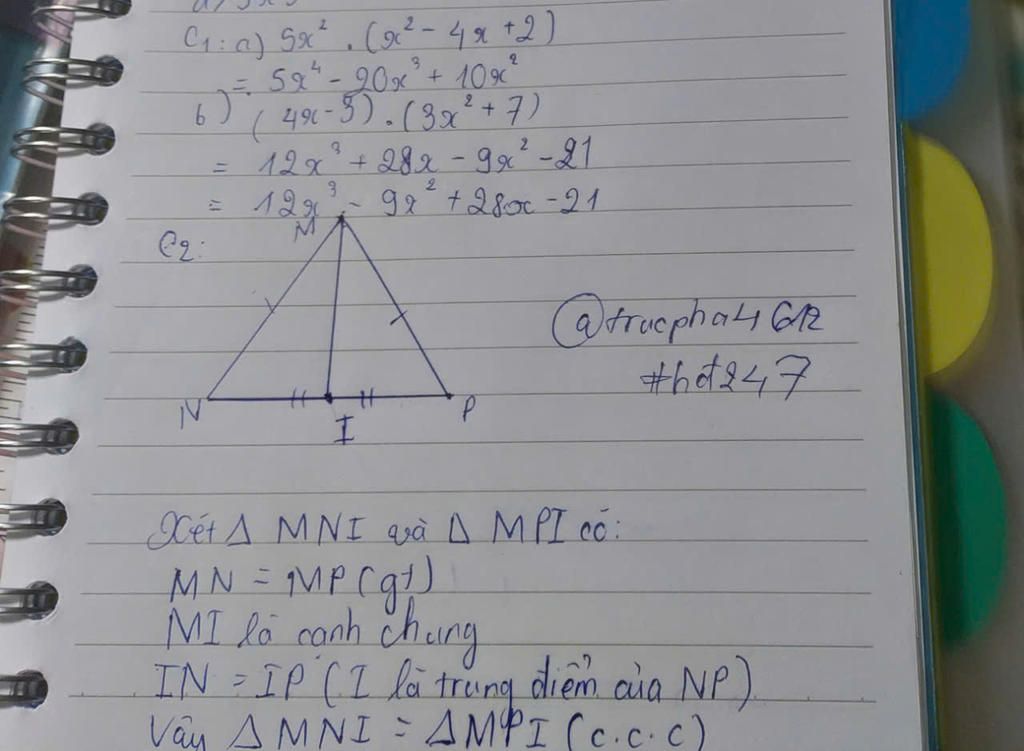 C1: a) 5x² . (x² - 4x + 2)
= 5x⁴ - 20x³ + 10x²
b) (4x - 3) . (3x² + 7)
= 12x³ + 28x - 9x² - 21
= 12x³ - 9x² + 28x - 21
C2:
M
N
I
P
@trucpha4612
#hđ247
Xét Δ MNI và Δ MPI có:
MN = MP (gt)
MI là cạnh chung
IN = IP (I là trung điểm của NP)
Vậy Δ MNI = ΔMPI (c.c.c)